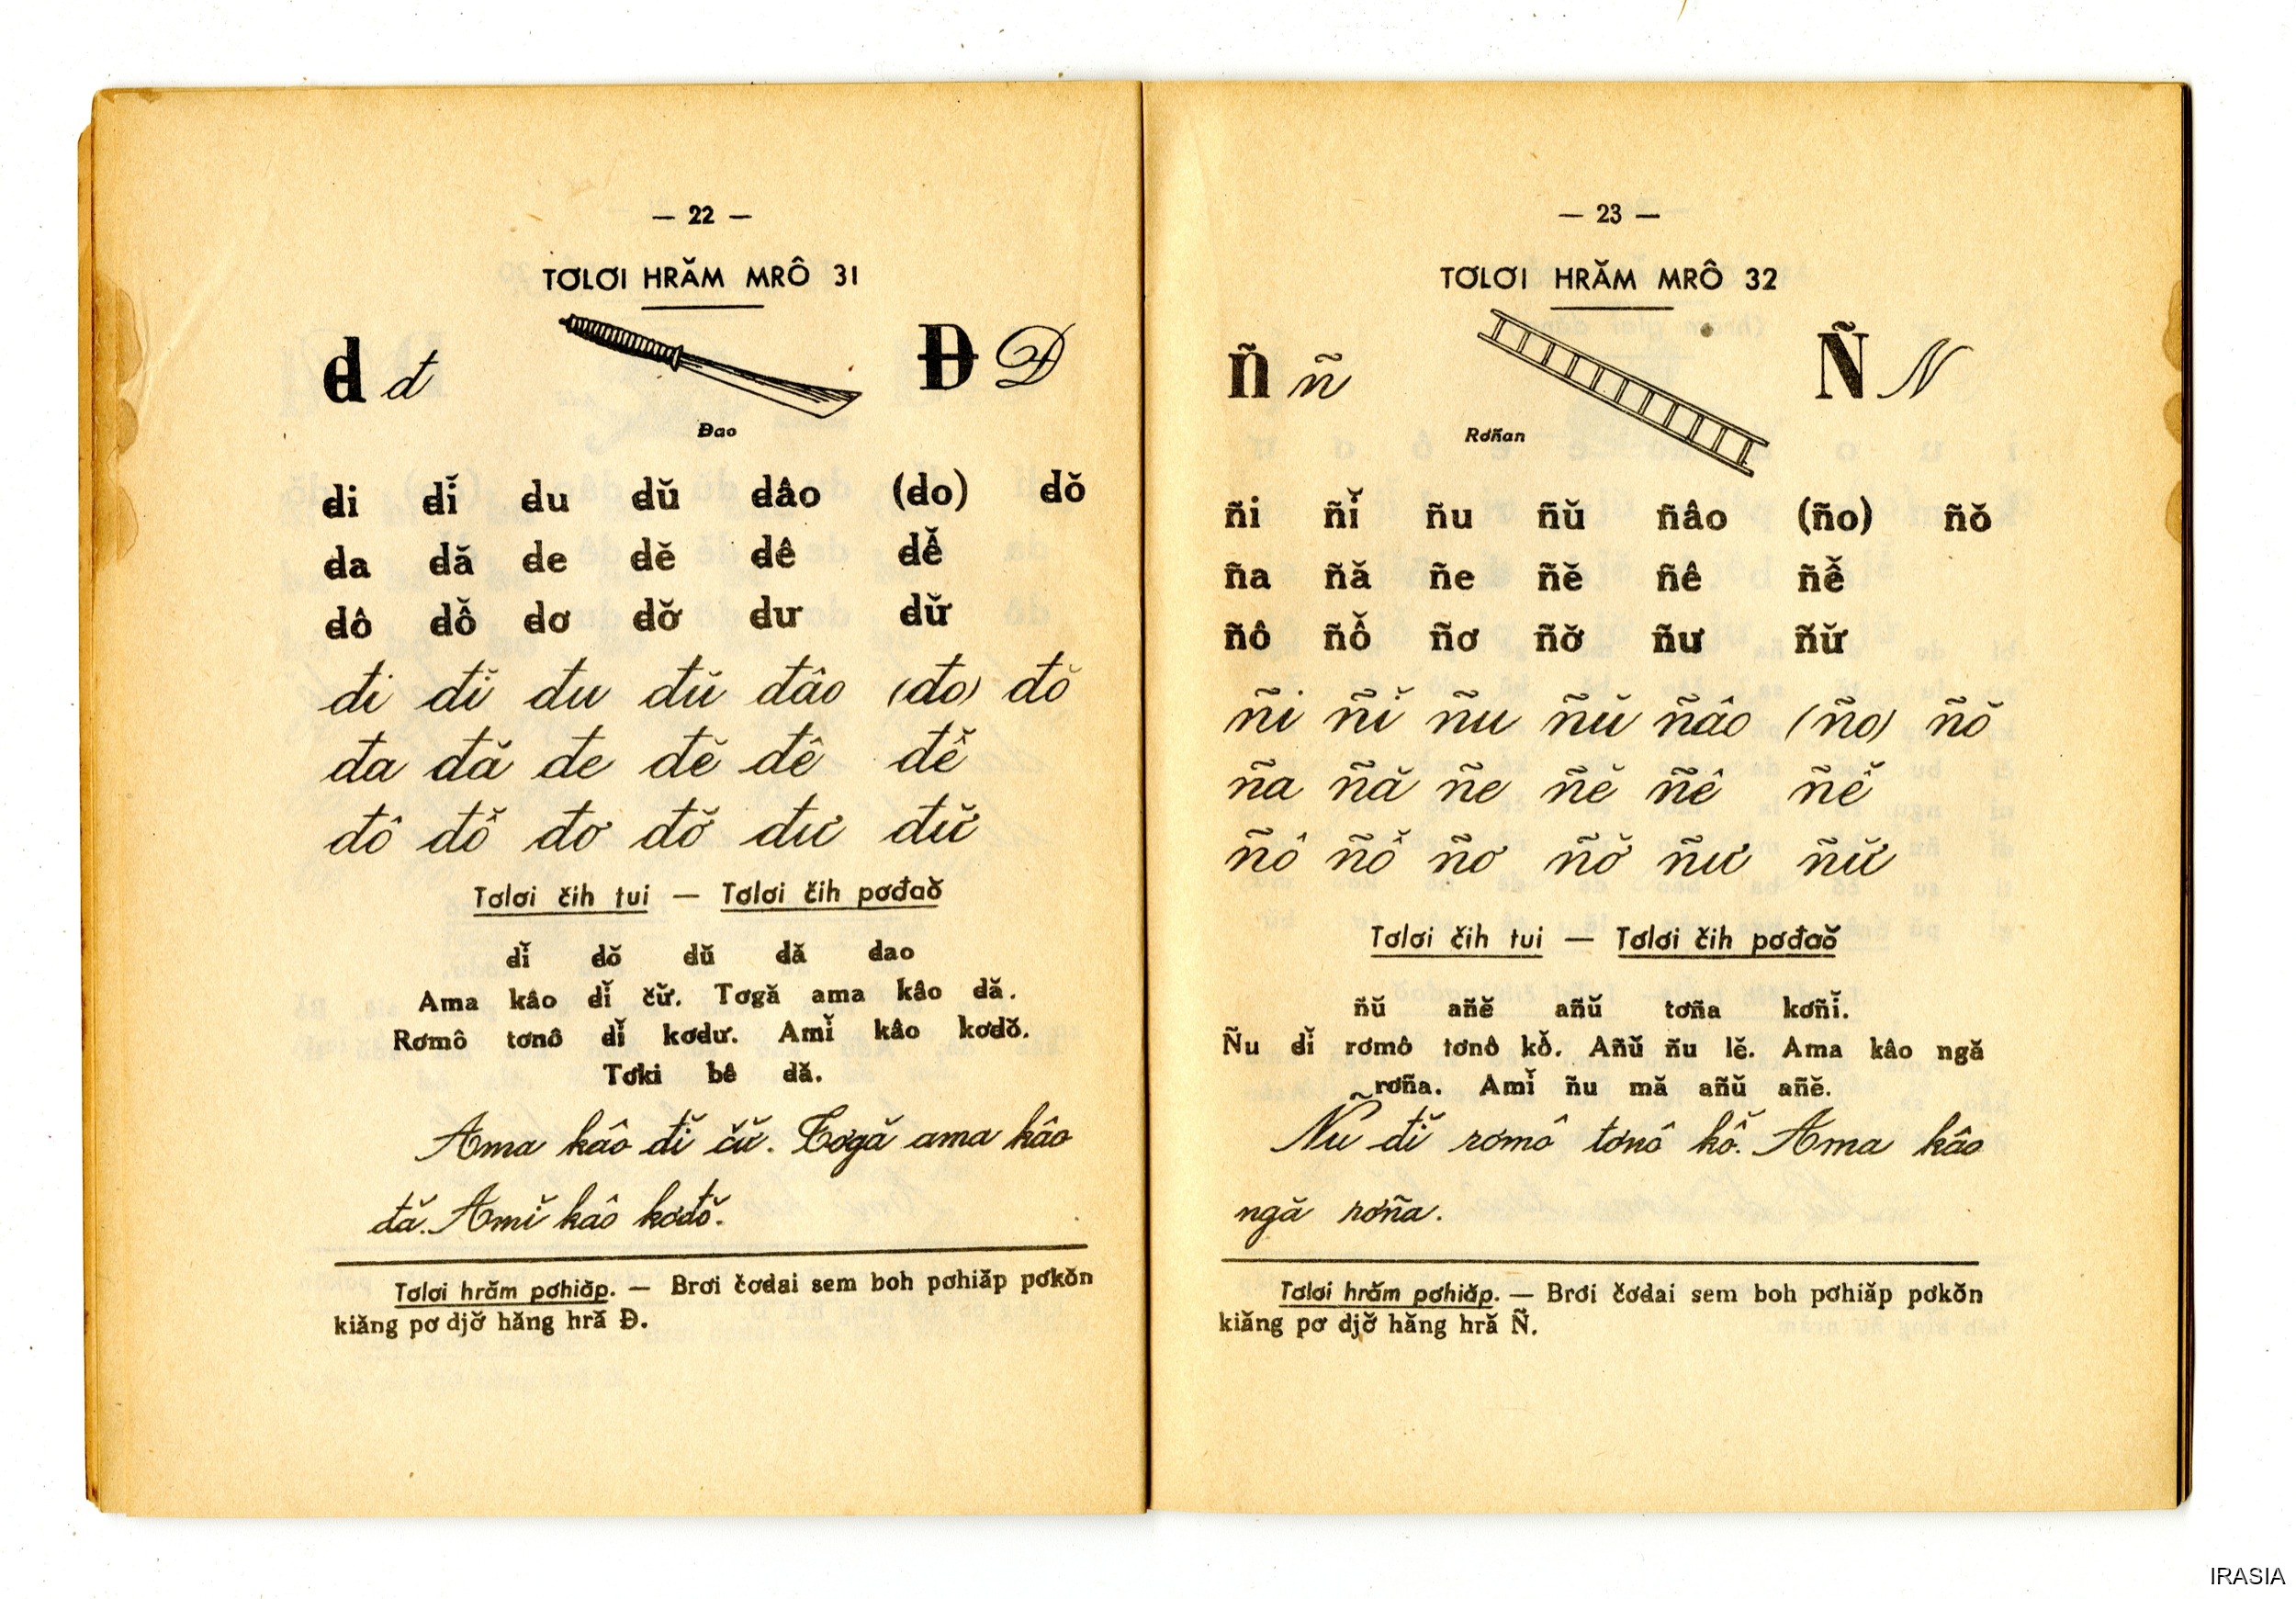 — 22 —
TƠLƠI HRĂM MRÔ 31
đ đ Đ Đ
Đao
đi đĭ đu đŭ đâo (đo) đŏ
đa đă đe đĕ đê đê̆
đô đô̆ đơ đơ̆ đư đư̆
đi đĭ đu đŭ đâo (đo) đŏ
đa đă đe đĕ đê đê̆
đô đô̆ đơ đơ̆ đư đư̆
Tơlơi čih tui — Tơlơi čih pơđaŏ
đĭ đŏ đŭ đă đao
Ama kâo đĭ čư̆. Tơgă ama kâo đă.
Rơmô tơnô đĭ kơđư. Amĭ kâo kơđŏ.
Tơki bê đă.
Ama kâo đĭ čư̆. Tơgă ama kâo
đă. Amĭ kâo kơđŏ.
Tơlơi hrăm pơhiăp. — Brơi čơđai sem boh pơhiăp pơkŏn
kiăng pơ djơ̆ hăng hră Đ.
— 23 —
TƠLƠI HRĂM MRÔ 32
ñ ñ Ñ N
Rơñan
ñi ñĭ ñu ñŭ ñâo (ño) ñŏ
ña ñă ñe ñĕ ñê ñê̆
ñô ñô̆ ñơ ñơ̆ ñư ñư̆
ñi ñĭ ñu ñŭ ñâo (ño) ñŏ
ña ñă ñe ñĕ ñê ñê̆
ñô ñô̆ ñơ ñơ̆ ñư ñư̆
Tơlơi čih tui — Tơlơi čih pơđaŏ
ñŭ añĕ añŭ tơña kơñĭ.
Ñu đĭ rơmô tơnô kô̆. Añŭ ñu lĕ. Ama kâo ngă
rơña. Amĭ ñu mă añŭ añĕ.
Ñu đĭ rơmô tơnô kô̆. Ama kâo
ngă rơña.
Tơlơi hrăm pơhiăp. — Brơi čơđai sem boh pơhiăp pơkŏn
kiăng pơ djơ̆ hăng hră Ñ.
IRASIA